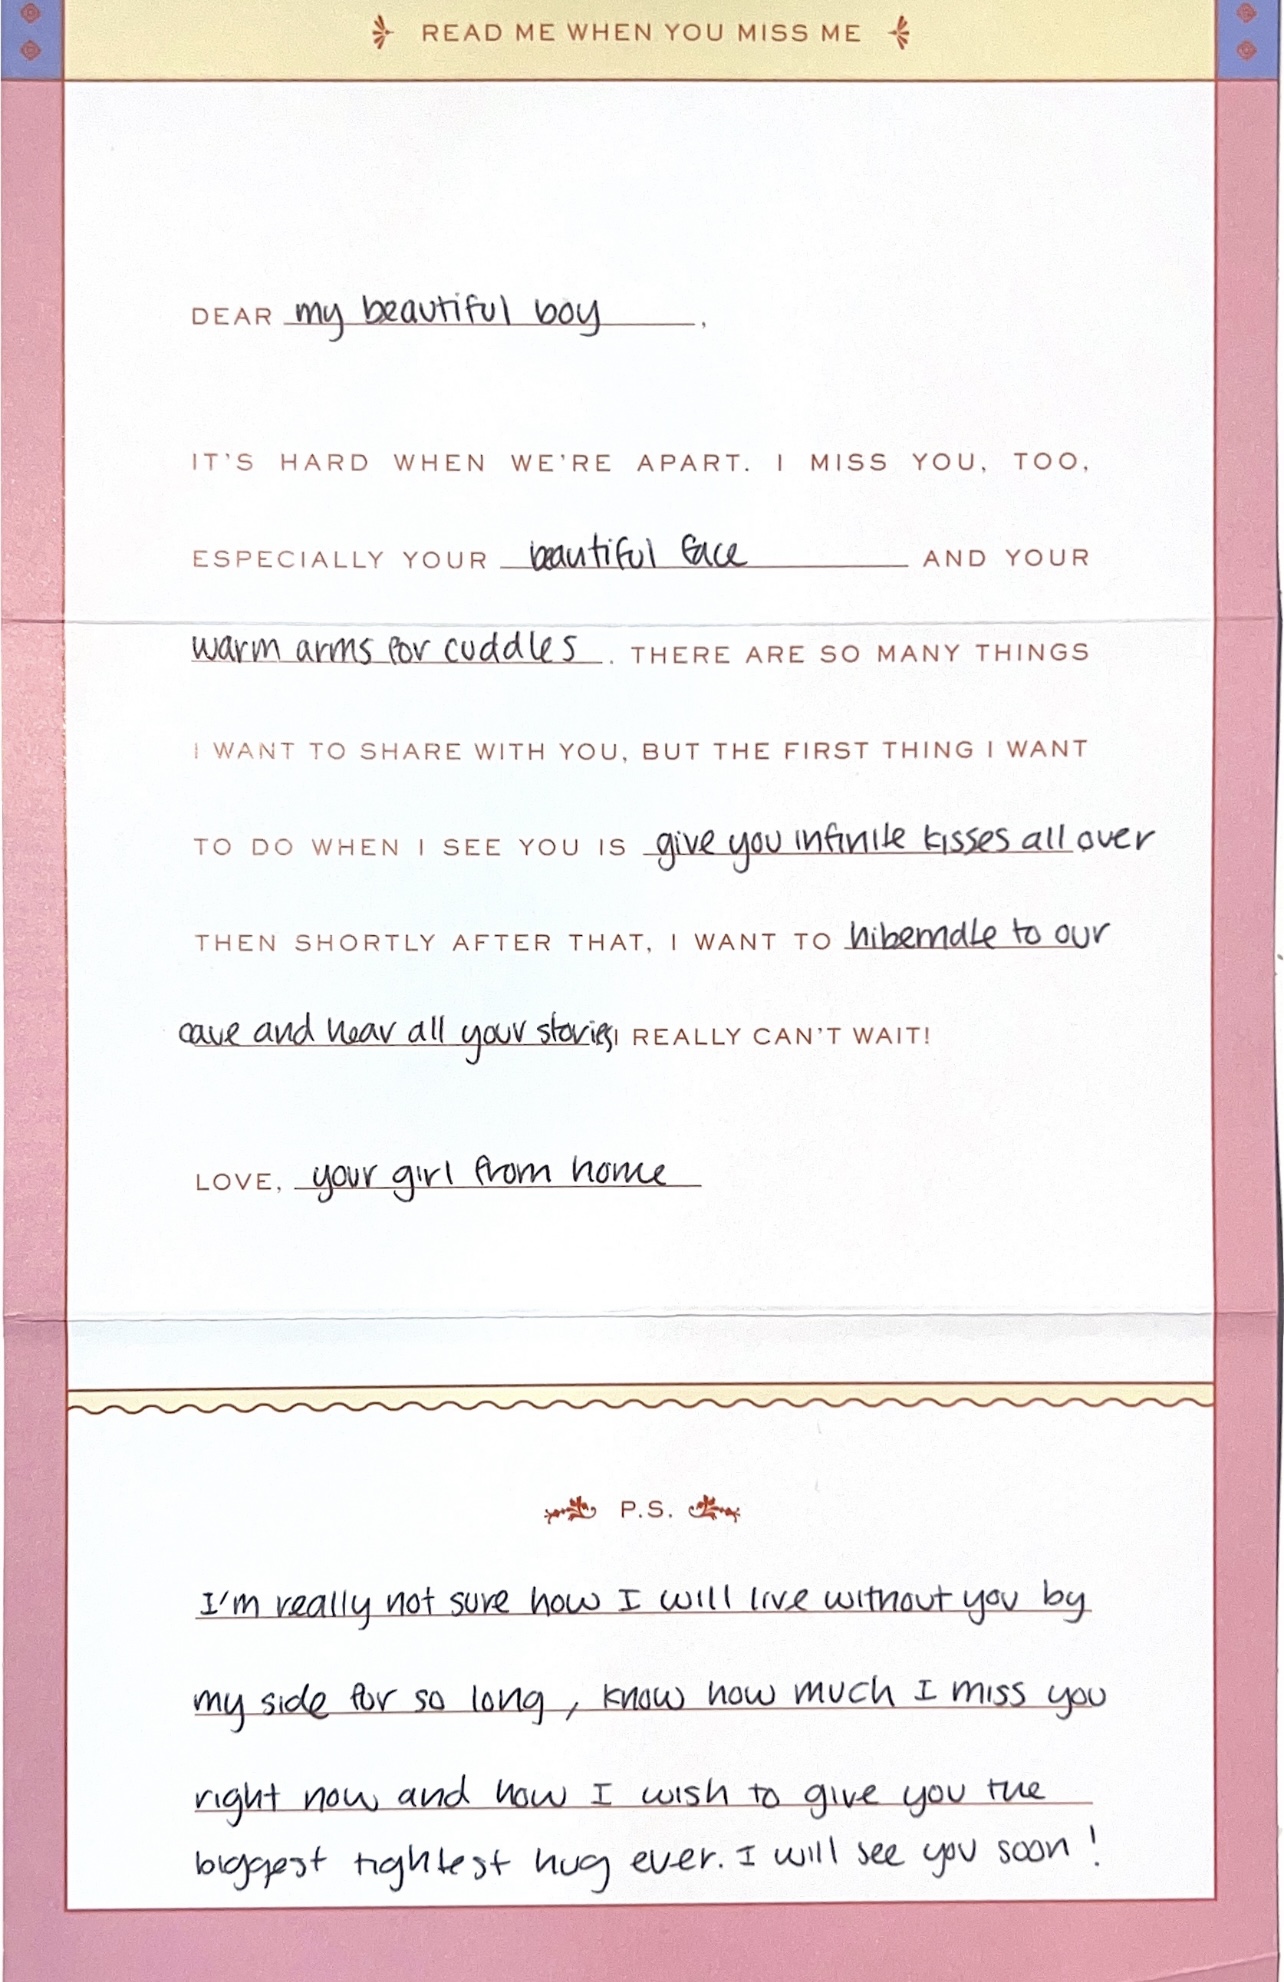 READ ME WHEN YOU MISS ME
DEAR my beautiful boy,
IT'S HARD WHEN WE'RE APART. I MISS YOU, TOO,
ESPECIALLY YOUR beautiful face AND YOUR
warm arms for cuddles. THERE ARE SO MANY THINGS
I WANT TO SHARE WITH YOU, BUT THE FIRST THING I WANT
TO DO WHEN I SEE YOU IS give you infinite kisses all over
THEN SHORTLY AFTER THAT, I WANT TO hibernate to our
cave and hear all your stories I REALLY CAN'T WAIT!
LOVE, your girl from home
P.S.
I'm really not sure how I will live without you by
my side for so long, know how much I miss you
right now and how I wish to give you the
biggest tightest hug ever. I will see you soon!